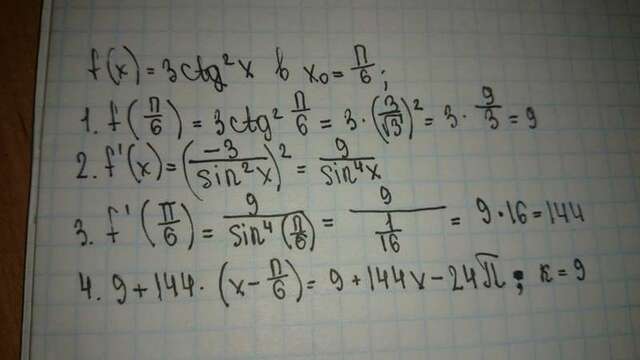 f(x) = 3ctg²x в x₀ = π/6;
1. f(π/6) = 3ctg² π/6 = 3·(3/√3)² = 3·9/3 = 9
2. f'(x) = (-3/sin²x)² = 9/sin⁴x
3. f'(π/6) = 9/sin⁴(π/6) = 9/(1/16) = 9·16 = 144
4. 9 + 144·(x - π/6) = 9 + 144x - 24π; к = 9